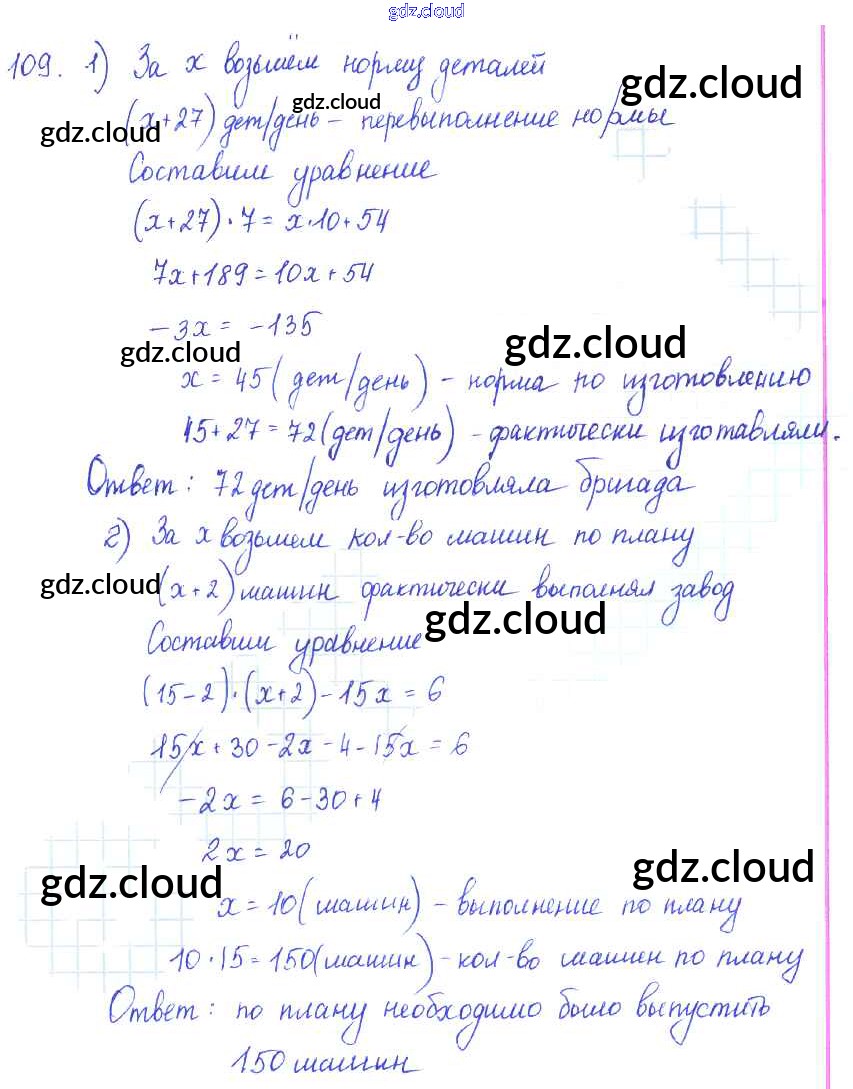 gdz.cloud
109. 1) За x возьмём норму деталей
gdz.cloud
gdz.cloud
gdz.cloud
(x+27) дет/день – перевыполнение нормы
Составим уравнение
(x+27)·7=x·10+54
7x+189=10x+54
-3x = -135
gdz.cloud
gdz.cloud
x = 45 (дет/день) - норма по изготовлению
45+27=72 (дет/день) - фактически изготавляли.
Ответ: 72 дет/день изготовляла бригада
2) За x возьмем кол-во машин по плану
gdz.cloud
(x+2) машин фактически выполнял завод
gdz.cloud
Составим уравнение
(15-2)·(x+2)-15x = 6
15x+30-2x-4-15x = 6
-2x = 6-30+4
2x = 20
gdz.cloud
gdz.cloud
x = 10 (машин) - выполнение по плану
10·15=150 (машин) - кол-во машин по плану
Ответ: по плану необходимо было выпустить
150 машин